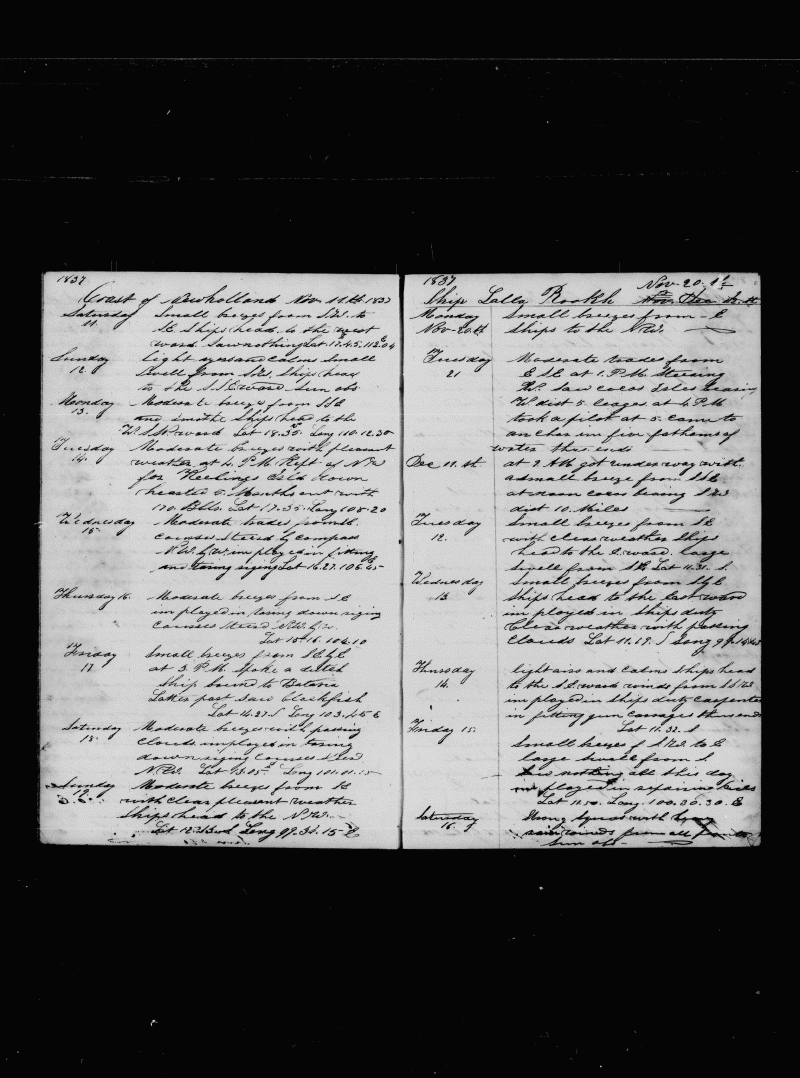 1837
Coast of Newholland Nov. 11th 1837
Saturday Small breezes from S.W. to
11. SE Ships head to the west
ward Saw nothing Lat 17.45. 112.04 E
Sunday light ayrs and calms Small
12 Swell from SW. Ship head
to the S.S.E ward Sun obs
Monday Moderate breezes from SbE
13. and smothe Ships head to the
W.S.W. ward Lat 18.35. Long 110.12.30
Tuesday Moderate breezes with pleasant
14. weather at 4. P.M. Kept of NW
for Keelings Eild down
5 Months out with
170 Bbls. Lat 17.35. Long 108.20
Wednesday Moderate trades from SE
15. courses Stered by compass
N.W. b W. imployed in fitting
and taring riging Lat 16.27. 106.45 E
Thursday 16. Moderate breezes from SE
imployed in taring down riging
courses Stered N.W. b W.
Lat 15.16. 104.10
Friday Small breezes from SE b E
17 at 3 P.M. Spoke a dutch
Ship bound to Batavia
Lat 14.27. S Long 103.45 E
Saturday Moderate breezes with passing
18. clouds imployed in taring
down riging courses Stered
N.W. Lat 13.15 Long 101.01.15
Sunday Moderate breezes from SE
19. with clear pleasant weather
Ships head to the N.W.
Lat 12.13 Long 99.31.15 E
1837 Nov. 20. 1st
Ship Lalla Rookh
Monday Small breezes from E
Nov. 20.th Ships to the N.W.
Tuesday Moderate trades from
21 E S E at 1. P.M. Steering
W. Saw cocos Isles bearing
W. dist 5. leages at 4 P.M
took a pilot at 5. came to
anchor in five fathoms of
water thus ends
Dec 11.th at 9 AM got under way with
a small breeze from SbE
at noon cocos bearing SW
dist 10. Miles
Tuesday Small breezes from SE
12. with clear weather Ships
head to the E. ward. large
Swell from SE Lat 11.31. S.
Wednesday Small breezes from SbE
13 Ships head to the East ward
imployed in Ships duty
Clear weather with passing
clouds Lat 11.19. S Long
Thursday light airs and calms Ships head
14. to the S E. ward winds from SSW
imployed in Ships duty carpenter
in fitting gun carriages thus ends
Lat 11.32. S
Friday 15. Small breezes f SW. to E
large Swell from S
Saw nothing all this day
imployed in repairing Sails
Lat 11.50. Long. 100.30.30. E
Saturday Strong with
16. rain winds from all
Sun obs